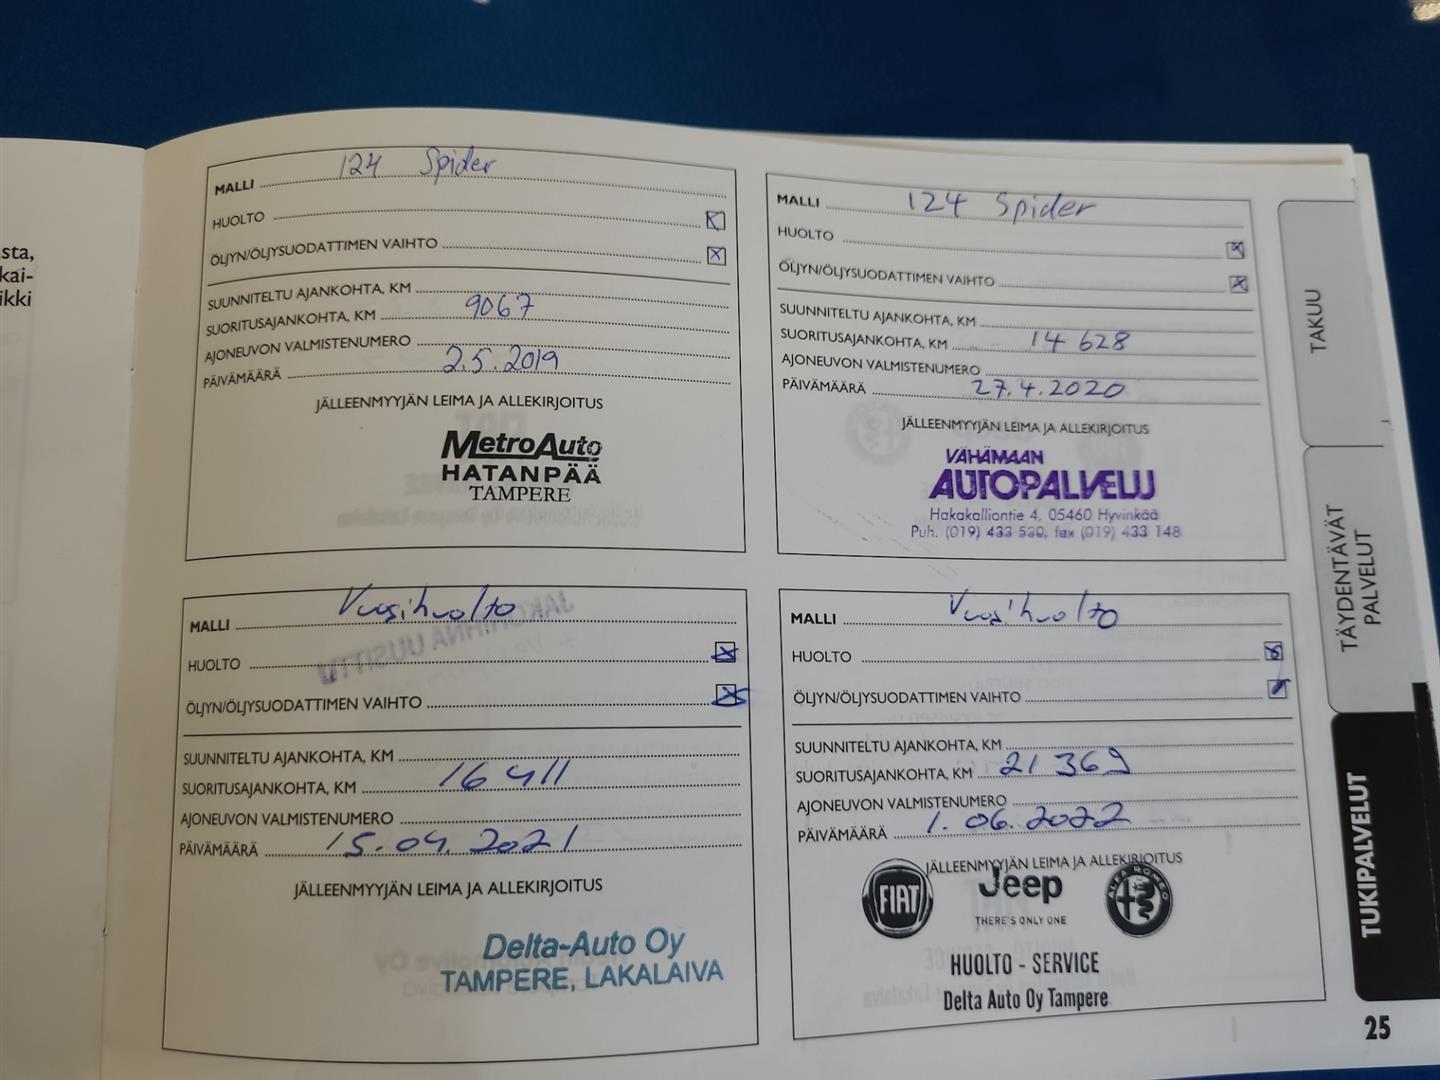 sta,
kai-
ikki
MALLI 124 Spider
HUOLTO
ÖLJYN/ÖLJYSUODATTIMEN VAIHTO
SUUNNITELTU AJANKOHTA, KM
SUORITUSAJANKOHTA, KM 9067
AJONEUVON VALMISTENUMERO
PÄIVÄMÄÄRÄ 2.5.2019
JÄLLEENMYYJÄN LEIMA JA ALLEKIRJOITUS
MetroAuto
HATANPÄÄ
TAMPERE
MALLI 124 Spider
HUOLTO
ÖLJYN/ÖLJYSUODATTIMEN VAIHTO
SUUNNITELTU AJANKOHTA, KM
SUORITUSAJANKOHTA, KM 14 628
AJONEUVON VALMISTENUMERO
PÄIVÄMÄÄRÄ 27.4.2020
JÄLLEENMYYJÄN LEIMA JA ALLEKIRJOITUS
VÄHÄMAAN
AUTOPALVELU
Hakakalliontie 4, 05460 Hyvinkää
Puh. (019) 433 530, fax (019) 433 148
MALLI Vuosihuolto
HUOLTO
ÖLJYN/ÖLJYSUODATTIMEN VAIHTO
SUUNNITELTU AJANKOHTA, KM
SUORITUSAJANKOHTA, KM 16 411
AJONEUVON VALMISTENUMERO
PÄIVÄMÄÄRÄ 15.04.2021
JÄLLEENMYYJÄN LEIMA JA ALLEKIRJOITUS
Delta-Auto Oy
TAMPERE, LAKALAIVA
MALLI Vuosihuolto
HUOLTO
ÖLJYN/ÖLJYSUODATTIMEN VAIHTO
SUUNNITELTU AJANKOHTA, KM
SUORITUSAJANKOHTA, KM 21 369
AJONEUVON VALMISTENUMERO
PÄIVÄMÄÄRÄ 1.06.2022
JÄLLEENMYYJÄN LEIMA JA ALLEKIRJOITUS
FIAT
Jeep
THERE'S ONLY ONE
ALFA ROMEO
HUOLTO - SERVICE
Delta Auto Oy Tampere
TAKUU
TÄYDENTÄVÄT
PALVELUT
TUKIPALVELUT
25